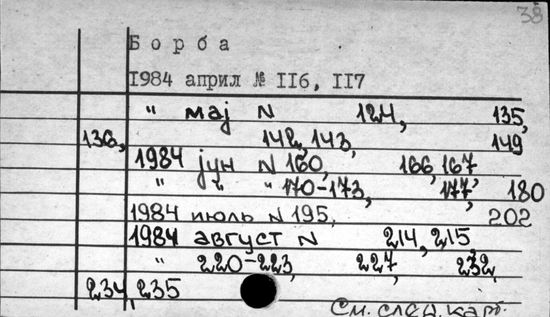 38
Борба
1984 април № 116, 117
" мај N 124, 135,
136, 142, 143, 149
1984 јун N 160, 166, 167,
" " " 170-173, 177, 180
1984 июль N 195, 202
1984 август N 214, 215,
" 220-223, 227, 232,
234, 235
См. след. карт.